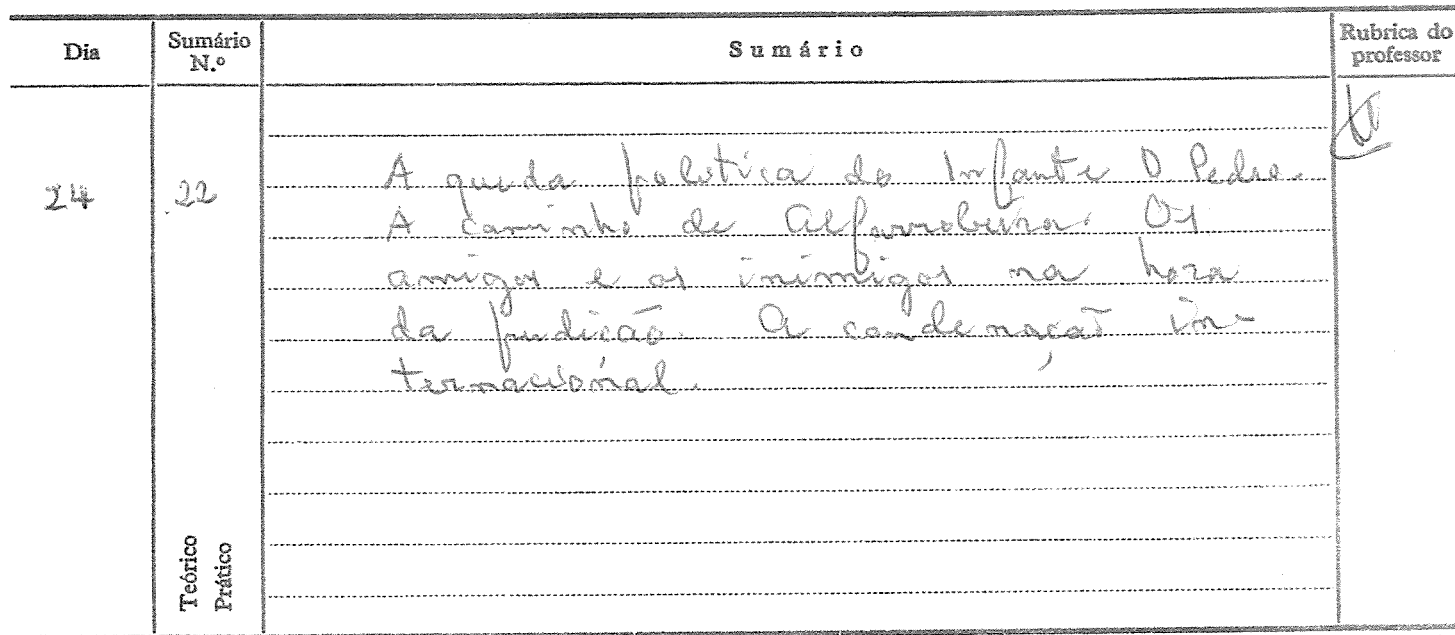 Dia Sumário N.º Sumário Rubrica do professor
24 22 A queda política do Infante D. Pedro.
A caminho de Alfarrobeira. Os
amigos e os inimigos na hora
da perdição. A condenação in-
ternacional.
Teórico
Prático